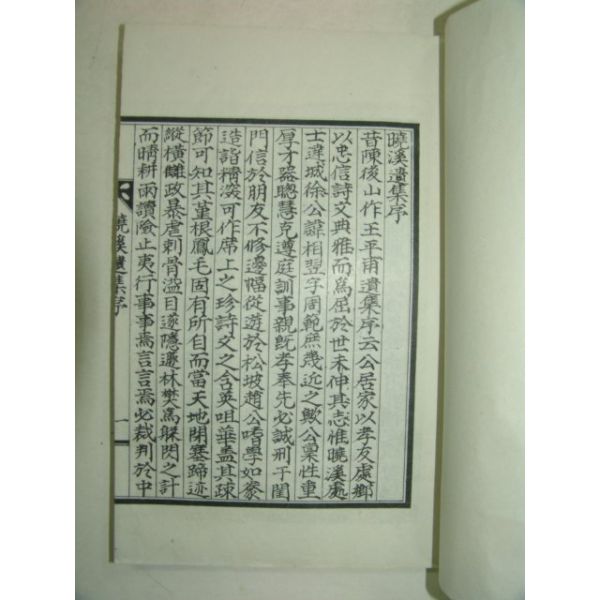 曉溪遺集序
昔陳後山作王平甫遺集序云公居家以孝友處鄉
以忠信詩文典雅而爲屈於世未伸其志惟曉溪處
士達城徐公諱相翌字周範庶幾近之歟公稟性重
厚才器聰慧克遵庭訓事親旣孝奉先必誠刑于閨
門信於朋友不修邊幅從遊於松坡趙公嗜學如豢
造詣精深可作席上之珍詩文之含英咀華盖其疎
節可知其菫根鳳毛固有所自而當天地閉塞蹄迹
縱橫雠政暴虐刺骨溢目遂隱遯林樊爲躱閃之計
而晴耕雨讀險止夷行事事焉言言焉必裁判於中
曉溪遺集序
一